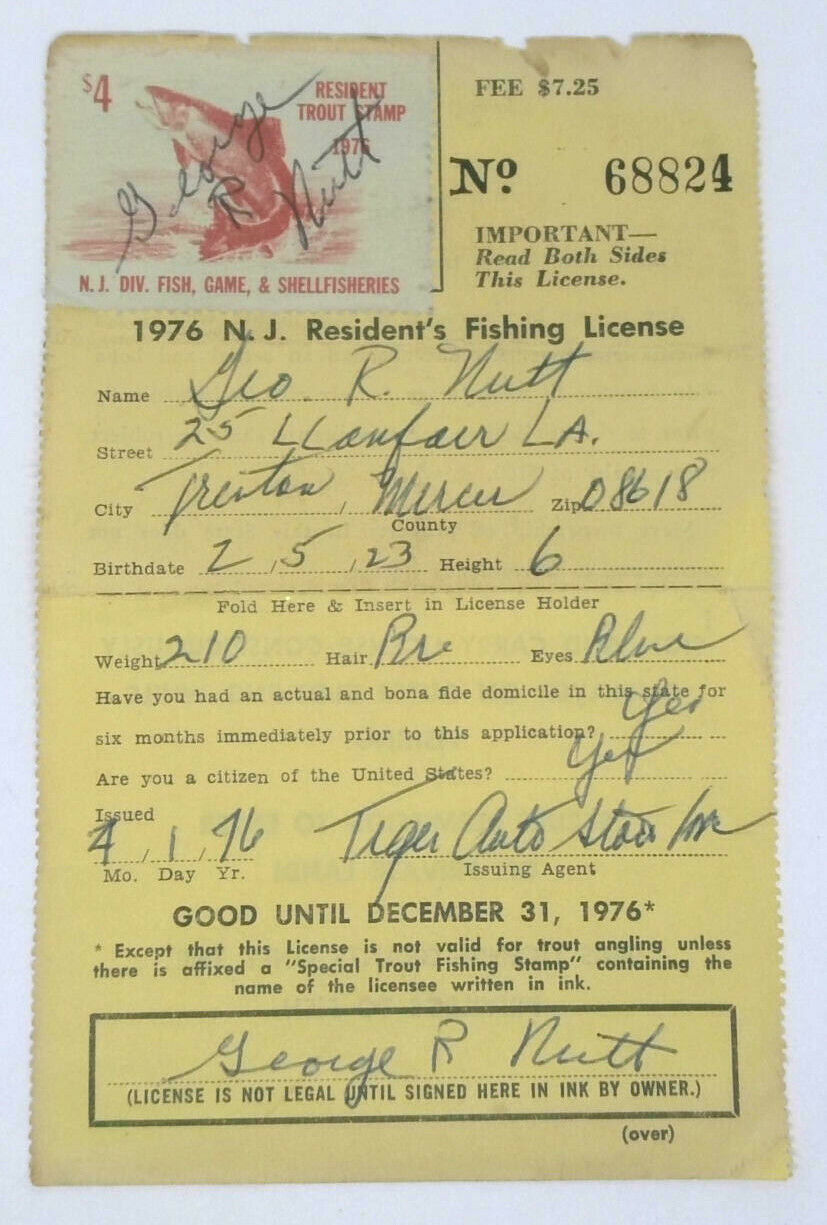 $4
RESIDENT
TROUT STAMP
1976
George
R
Nutt
N. J. DIV. FISH, GAME, & SHELLFISHERIES
FEE $7.25
Nº 68824
IMPORTANT—
Read Both Sides
This License.
1976 N. J. Resident's Fishing License
Name Geo. R. Nutt
Street 25 LLanfair LA.
City Trenton, Mercer Zip 08618
County
Birthdate 2 / 5 / 23 Height 6
Fold Here & Insert in License Holder
Weight 210 Hair Bro Eyes Blue
Have you had an actual and bona fide domicile in this state for
six months immediately prior to this application? Yes
Are you a citizen of the United States? Yes
Issued
4 / 1 / 76 Tiger Auto Stores Inc
Mo. Day Yr. Issuing Agent
GOOD UNTIL DECEMBER 31, 1976*
* Except that this License is not valid for trout angling unless
there is affixed a "Special Trout Fishing Stamp" containing the
name of the licensee written in ink.
George R Nutt
(LICENSE IS NOT LEGAL UNTIL SIGNED HERE IN INK BY OWNER.)
(over)